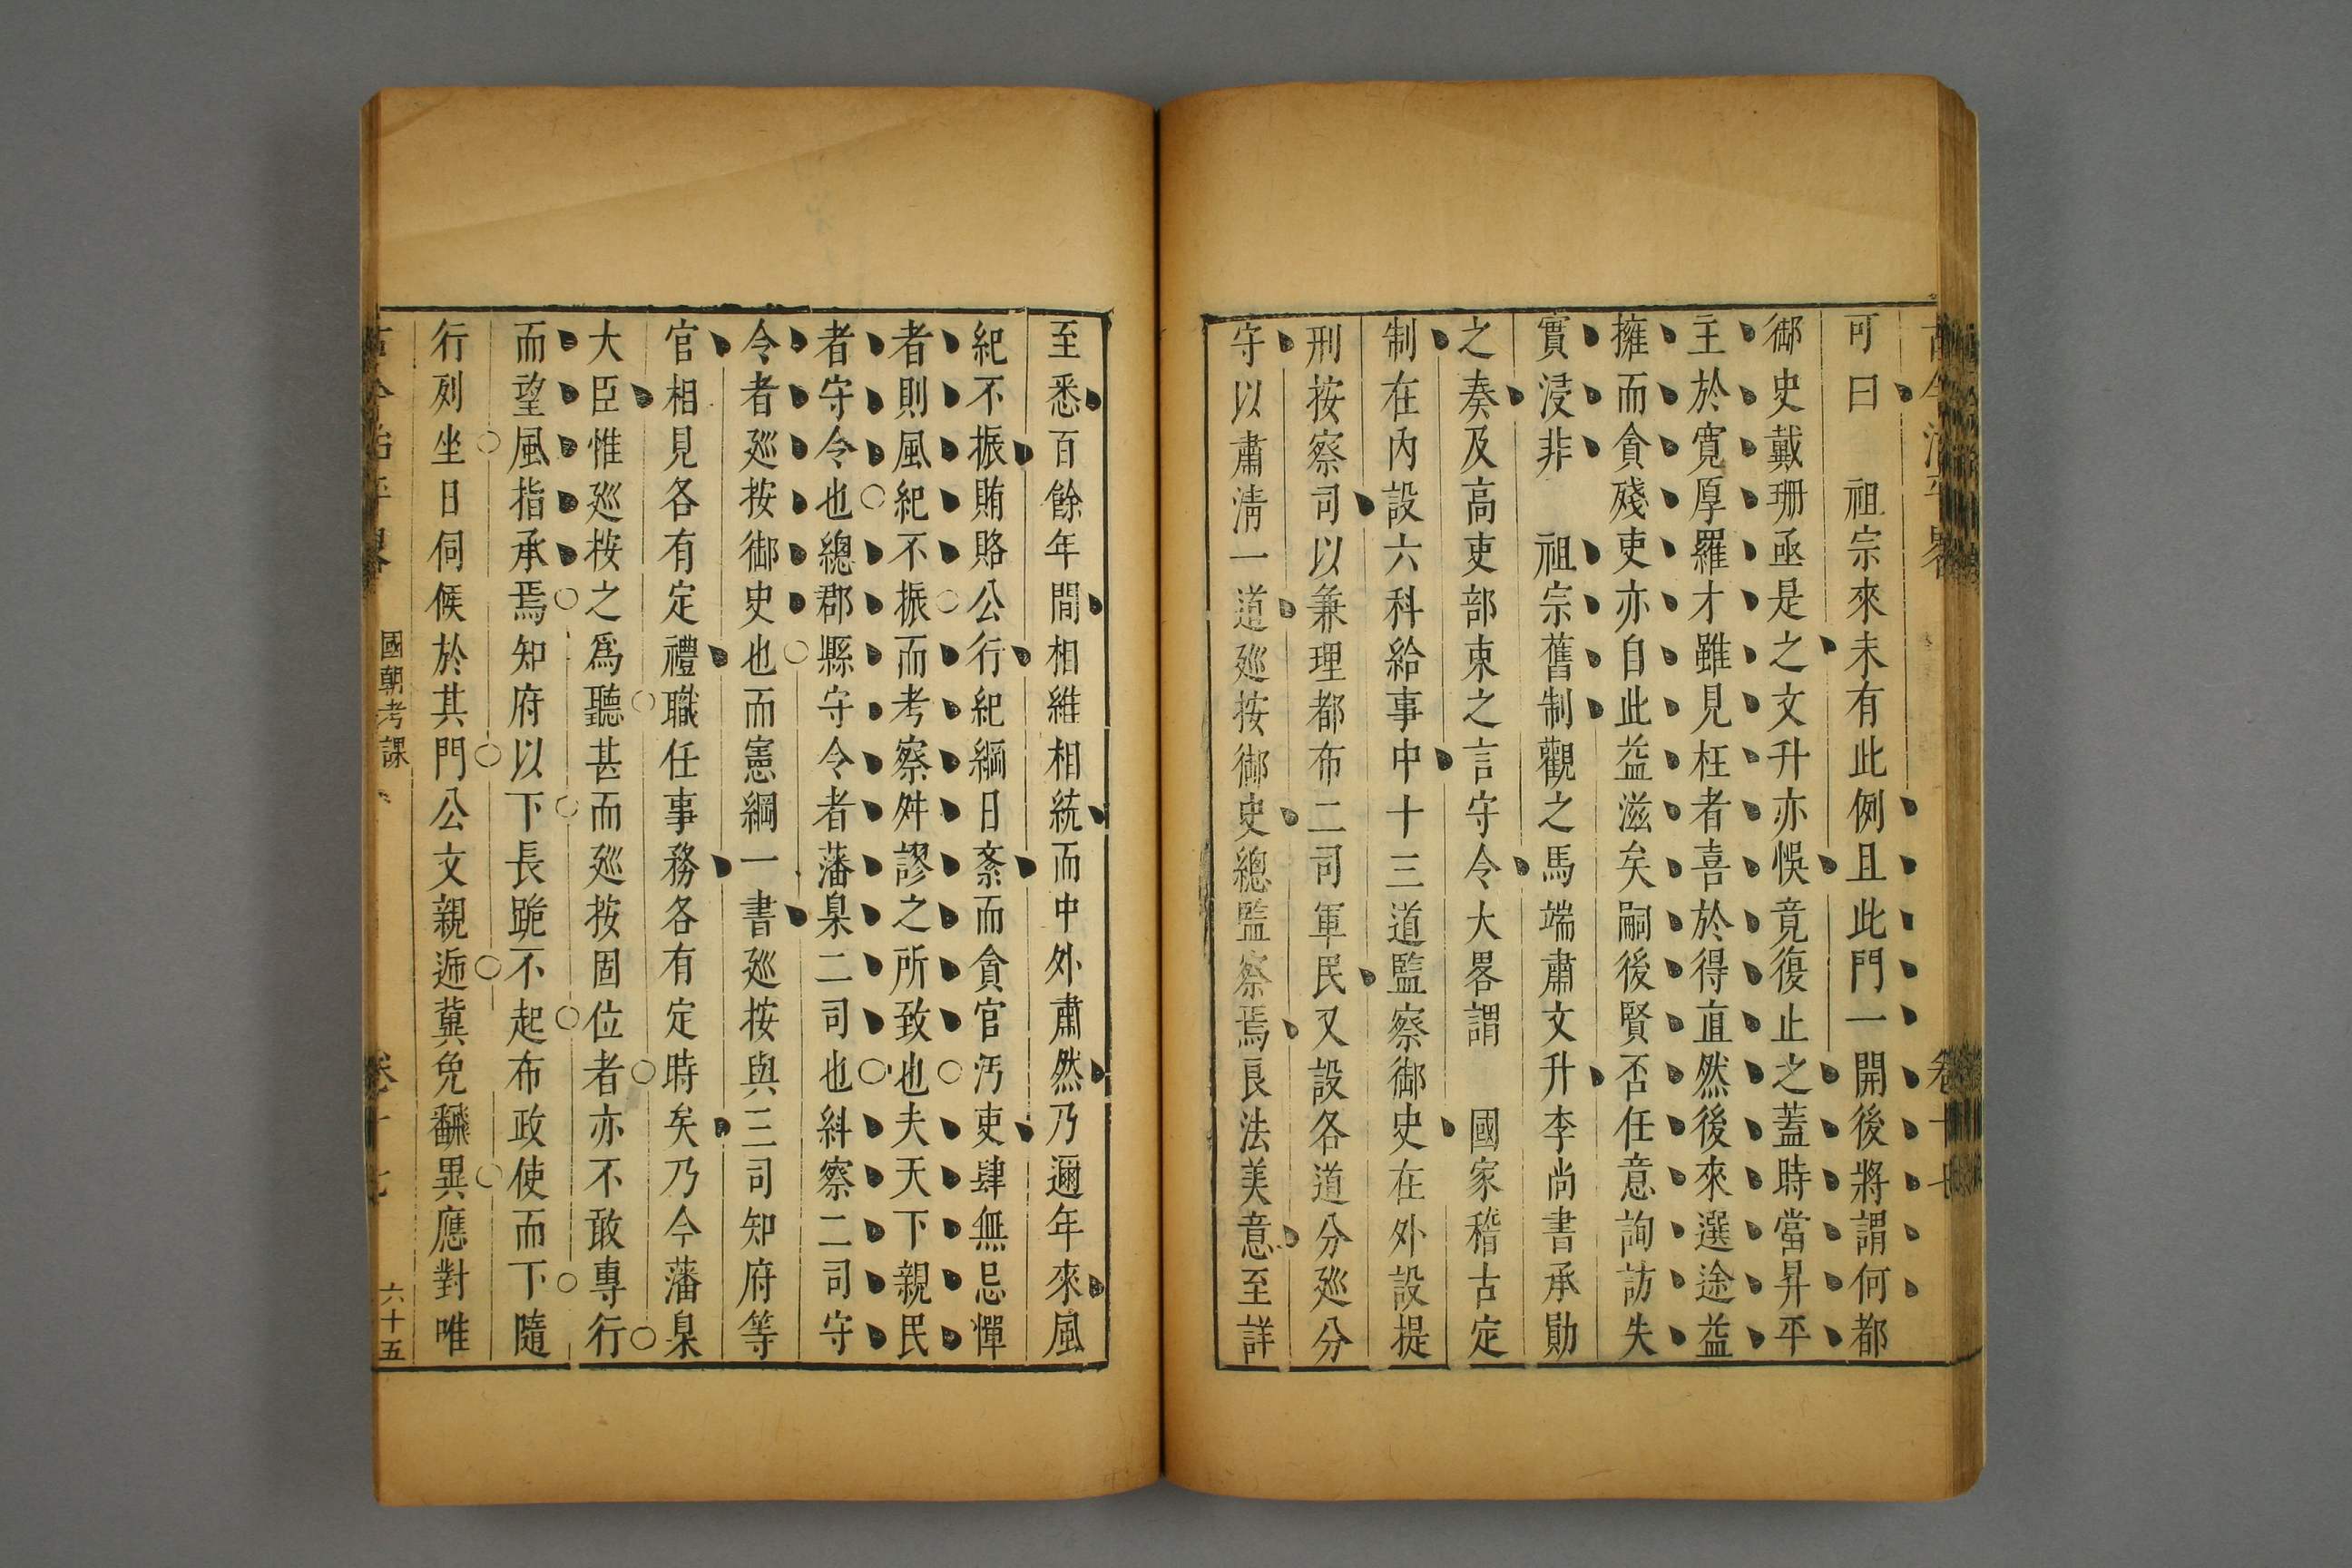 可曰　祖宗來未有此例且此門一開後將謂何都
御史戴珊亟是之文升亦悞竟復止之蓋時當昇平
主於寛厚羅才雖見枉者喜於得直然後來選途益
擁而貪殘吏亦自此益滋矣嗣後賢否任意詢訪失
實浸非　祖宗舊制觀之馬端肅文升李尚書承勛
之奏及高吏部束之言守令大畧謂　國家稽古定
制在內設六科給事中十三道監察御史在外設提
刑按察司以兼理都布二司軍民又設各道分廵分
守以肅淸一道廵按御史總監察焉良法美意至詳
至悉百餘年間相維相統而中外肅然乃邇年來風
紀不振賄賂公行紀綱日紊而貪官汚吏肆無忌憚
者則風紀不振而考察舛謬之所致也夫天下親民
者守令也總郡縣守令者藩臬二司也糾察二司守
令者廵按御史也而憲綱一書廵按與三司知府等
官相見各有定禮職任事務各有定時矣乃今藩臬
大臣惟廵按之爲聽甚而廵按固位者亦不敢專行
而望風指承焉知府以下長跪不起布政使而下隨
行列坐日伺候於其門公文親遞冀免飜異應對唯
國朝考課
卷十七
六十五